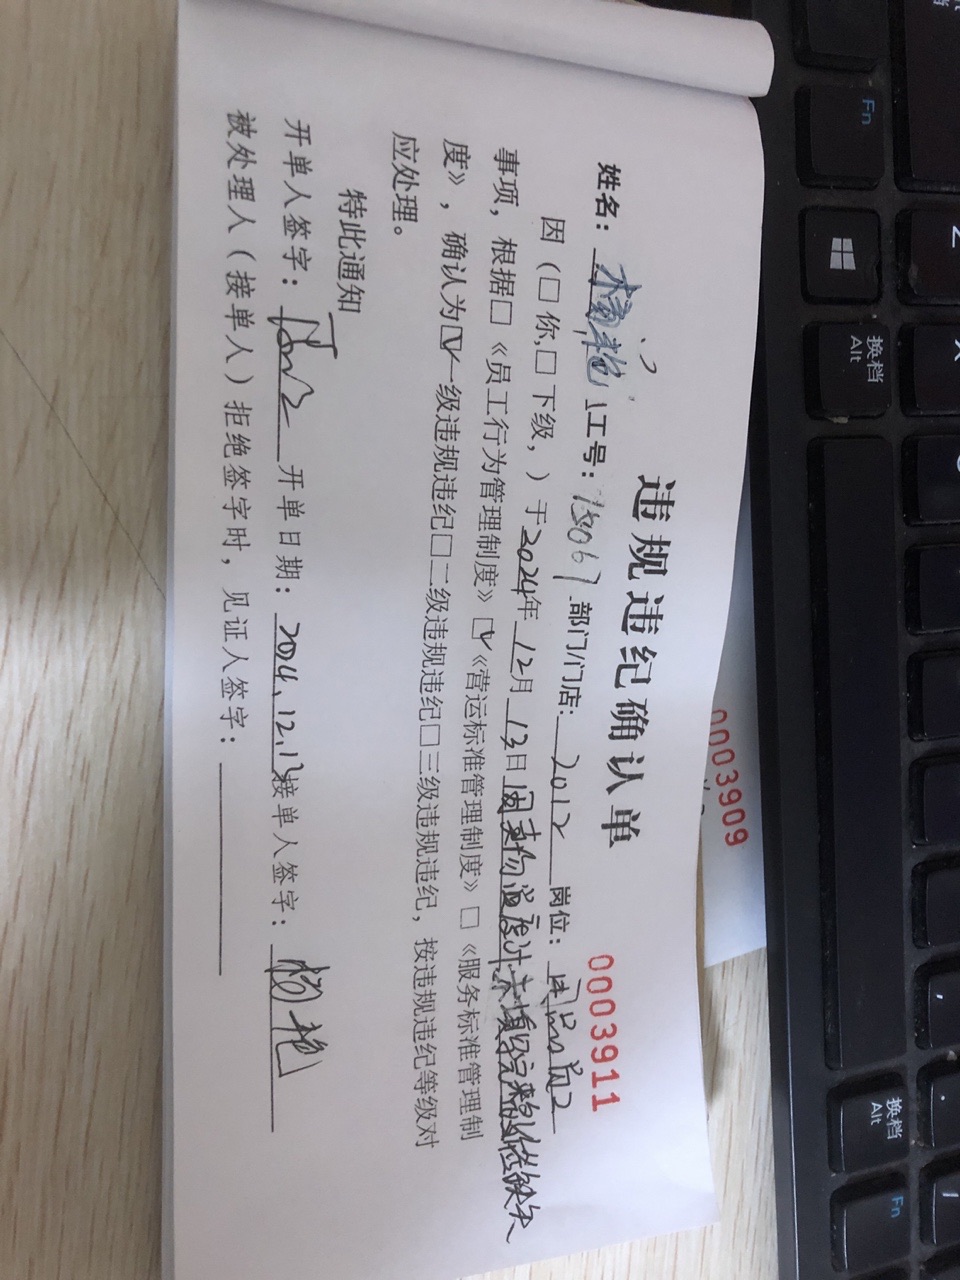 违规违纪确认单
0003911
姓名：杨艳 工号：15067 部门/门店：2012 岗位：
因（□你,□下级，）于2024年12月13日因
事项，根据□《员工行为管理制度》☑《营运标准管理制度》□《服务标准管理制
度》，确认为☑一级违规违纪□二级违规违纪□三级违规违纪，按违规违纪等级对
应处理。
特此通知
开单人签字： 开单日期：2024.12.13接单人签字：杨艳
被处理人（接单人）拒绝签字时，见证人签字：
0003909
Fn
换档
Alt
Z
X
换档
Alt
Fn